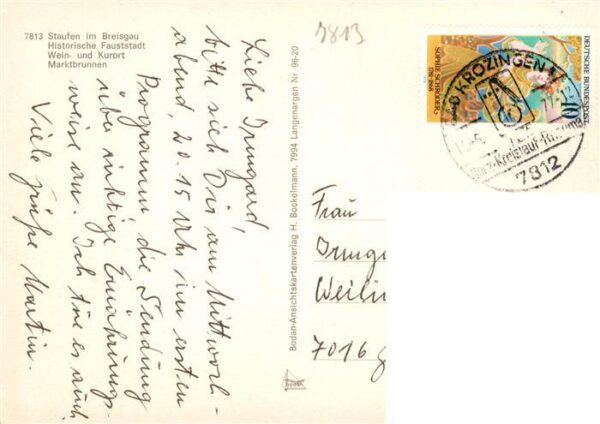 7813 Staufen im Breisgau
Historische Fauststadt
Wein- und Kurort
Marktbrunnen
7813
Liebe Irmgard,
bitte sieh Dir am Mittwoch-
abend, 20.15 Uhr im ersten
Programm die Sendung
über richtige Ernährungs-
weise an. Ich tue es auch
Viele Grüße Martin.
Bodan-Ansichtskartenverlag H. Bockelmann, 7994 Langenargen Nr. 96-20
SOPHIE SCHRÖDER
DEUTSCHE BUNDESPOST
40
BAD KROZINGEN
Herz-Kreislauf-Rheuma
7812
Frau
Irmga
Weilin
7016 g